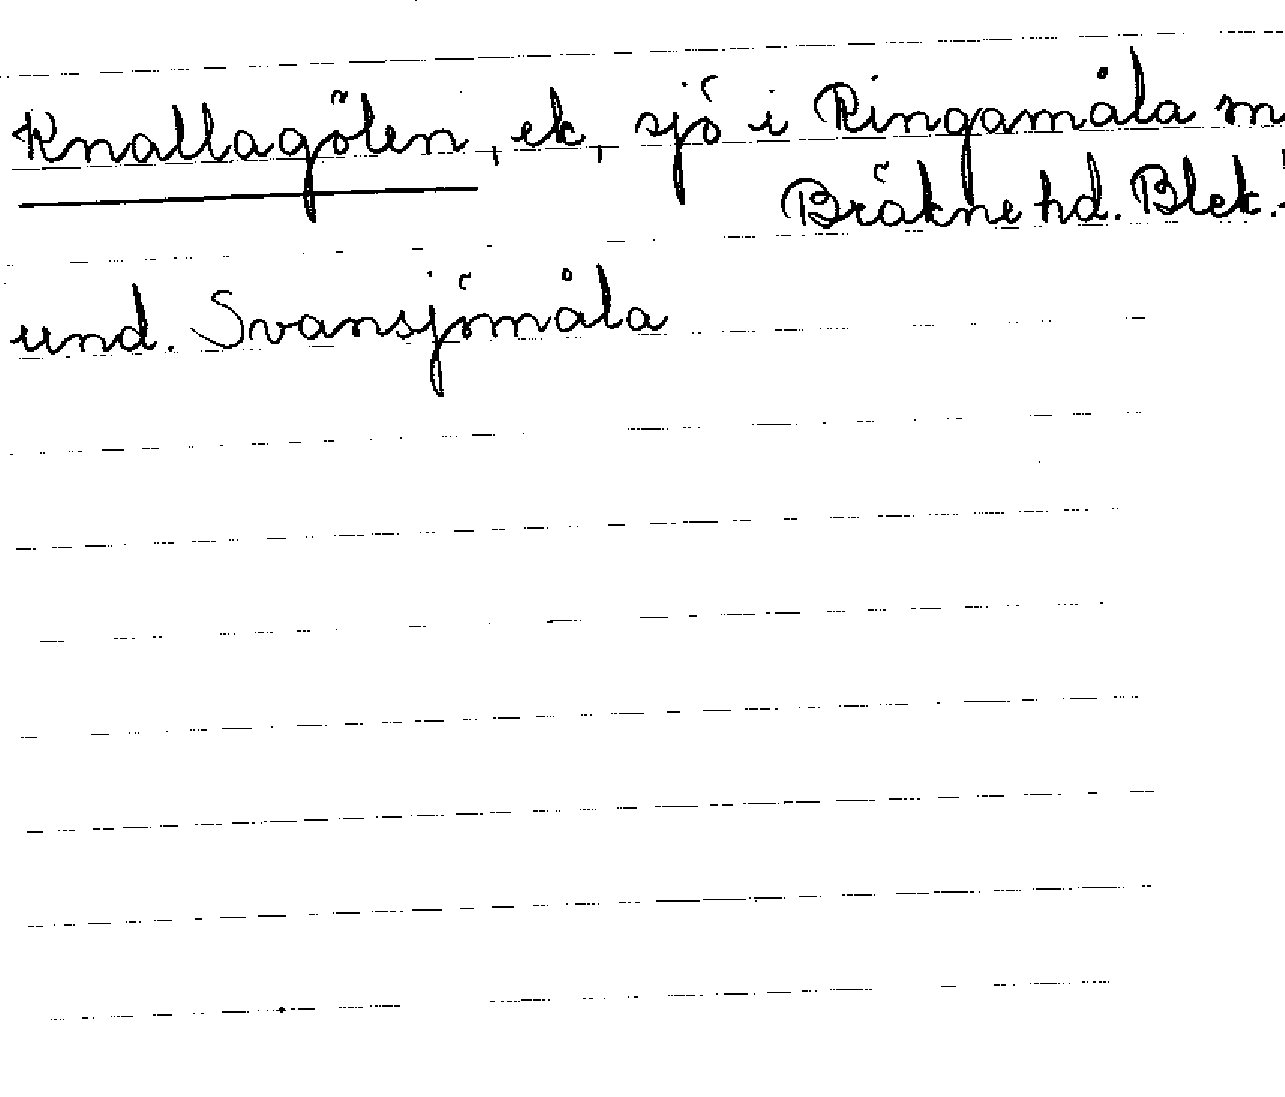 Knallagölen, ek, sjö i Ringamåla
Bräkne hd. Blek.
und. Svansjömåla